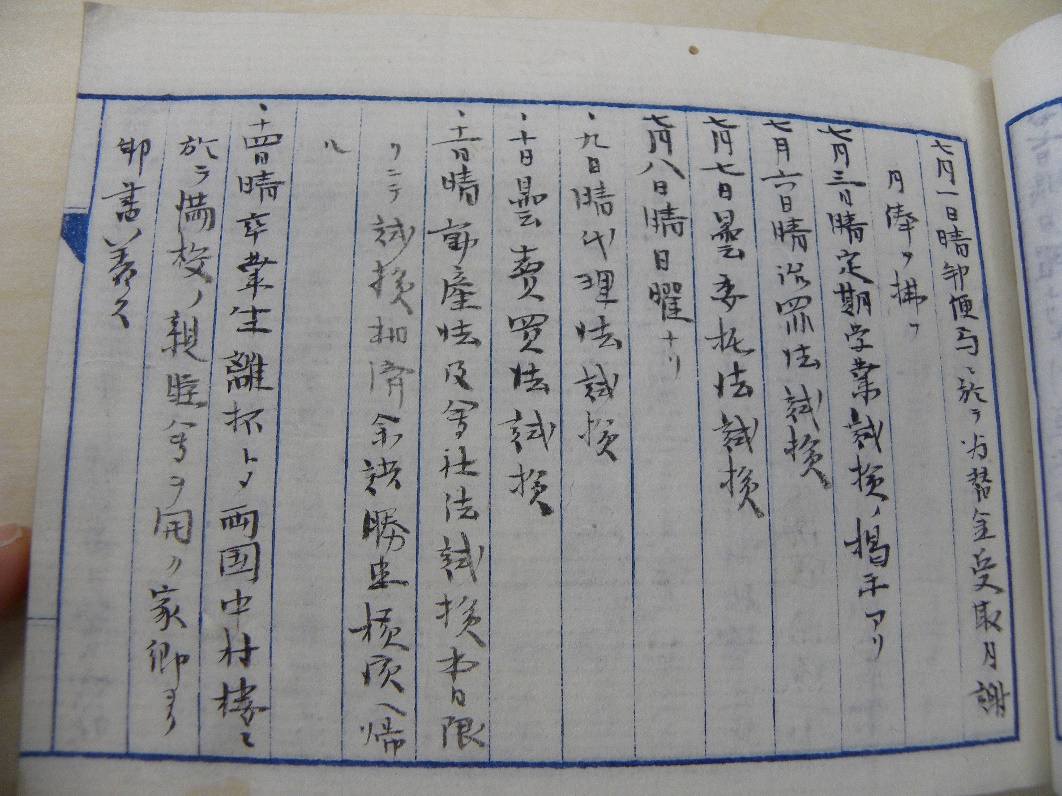 七月一日晴郵便局ニ於テ為替金受取月謝
月俸ヲ拂フ
七月三日晴定期学業試検ノ揭示アリ
七月六日晴治罪法試検
七月七日曇委托法試検
七月八日晴日曜ナリ
・九日晴代理法試検
・十日曇賣買法試検
・十二日晴動産法及會社法試検本日限
リニテ試検相済余
勝
横濱ヘ帰
ル
・十四日晴卒業生離杯トメ両国中村楼ニ
於テ満校ノ親睦會ヲ開ク家郷ヨリ
郵書着ス